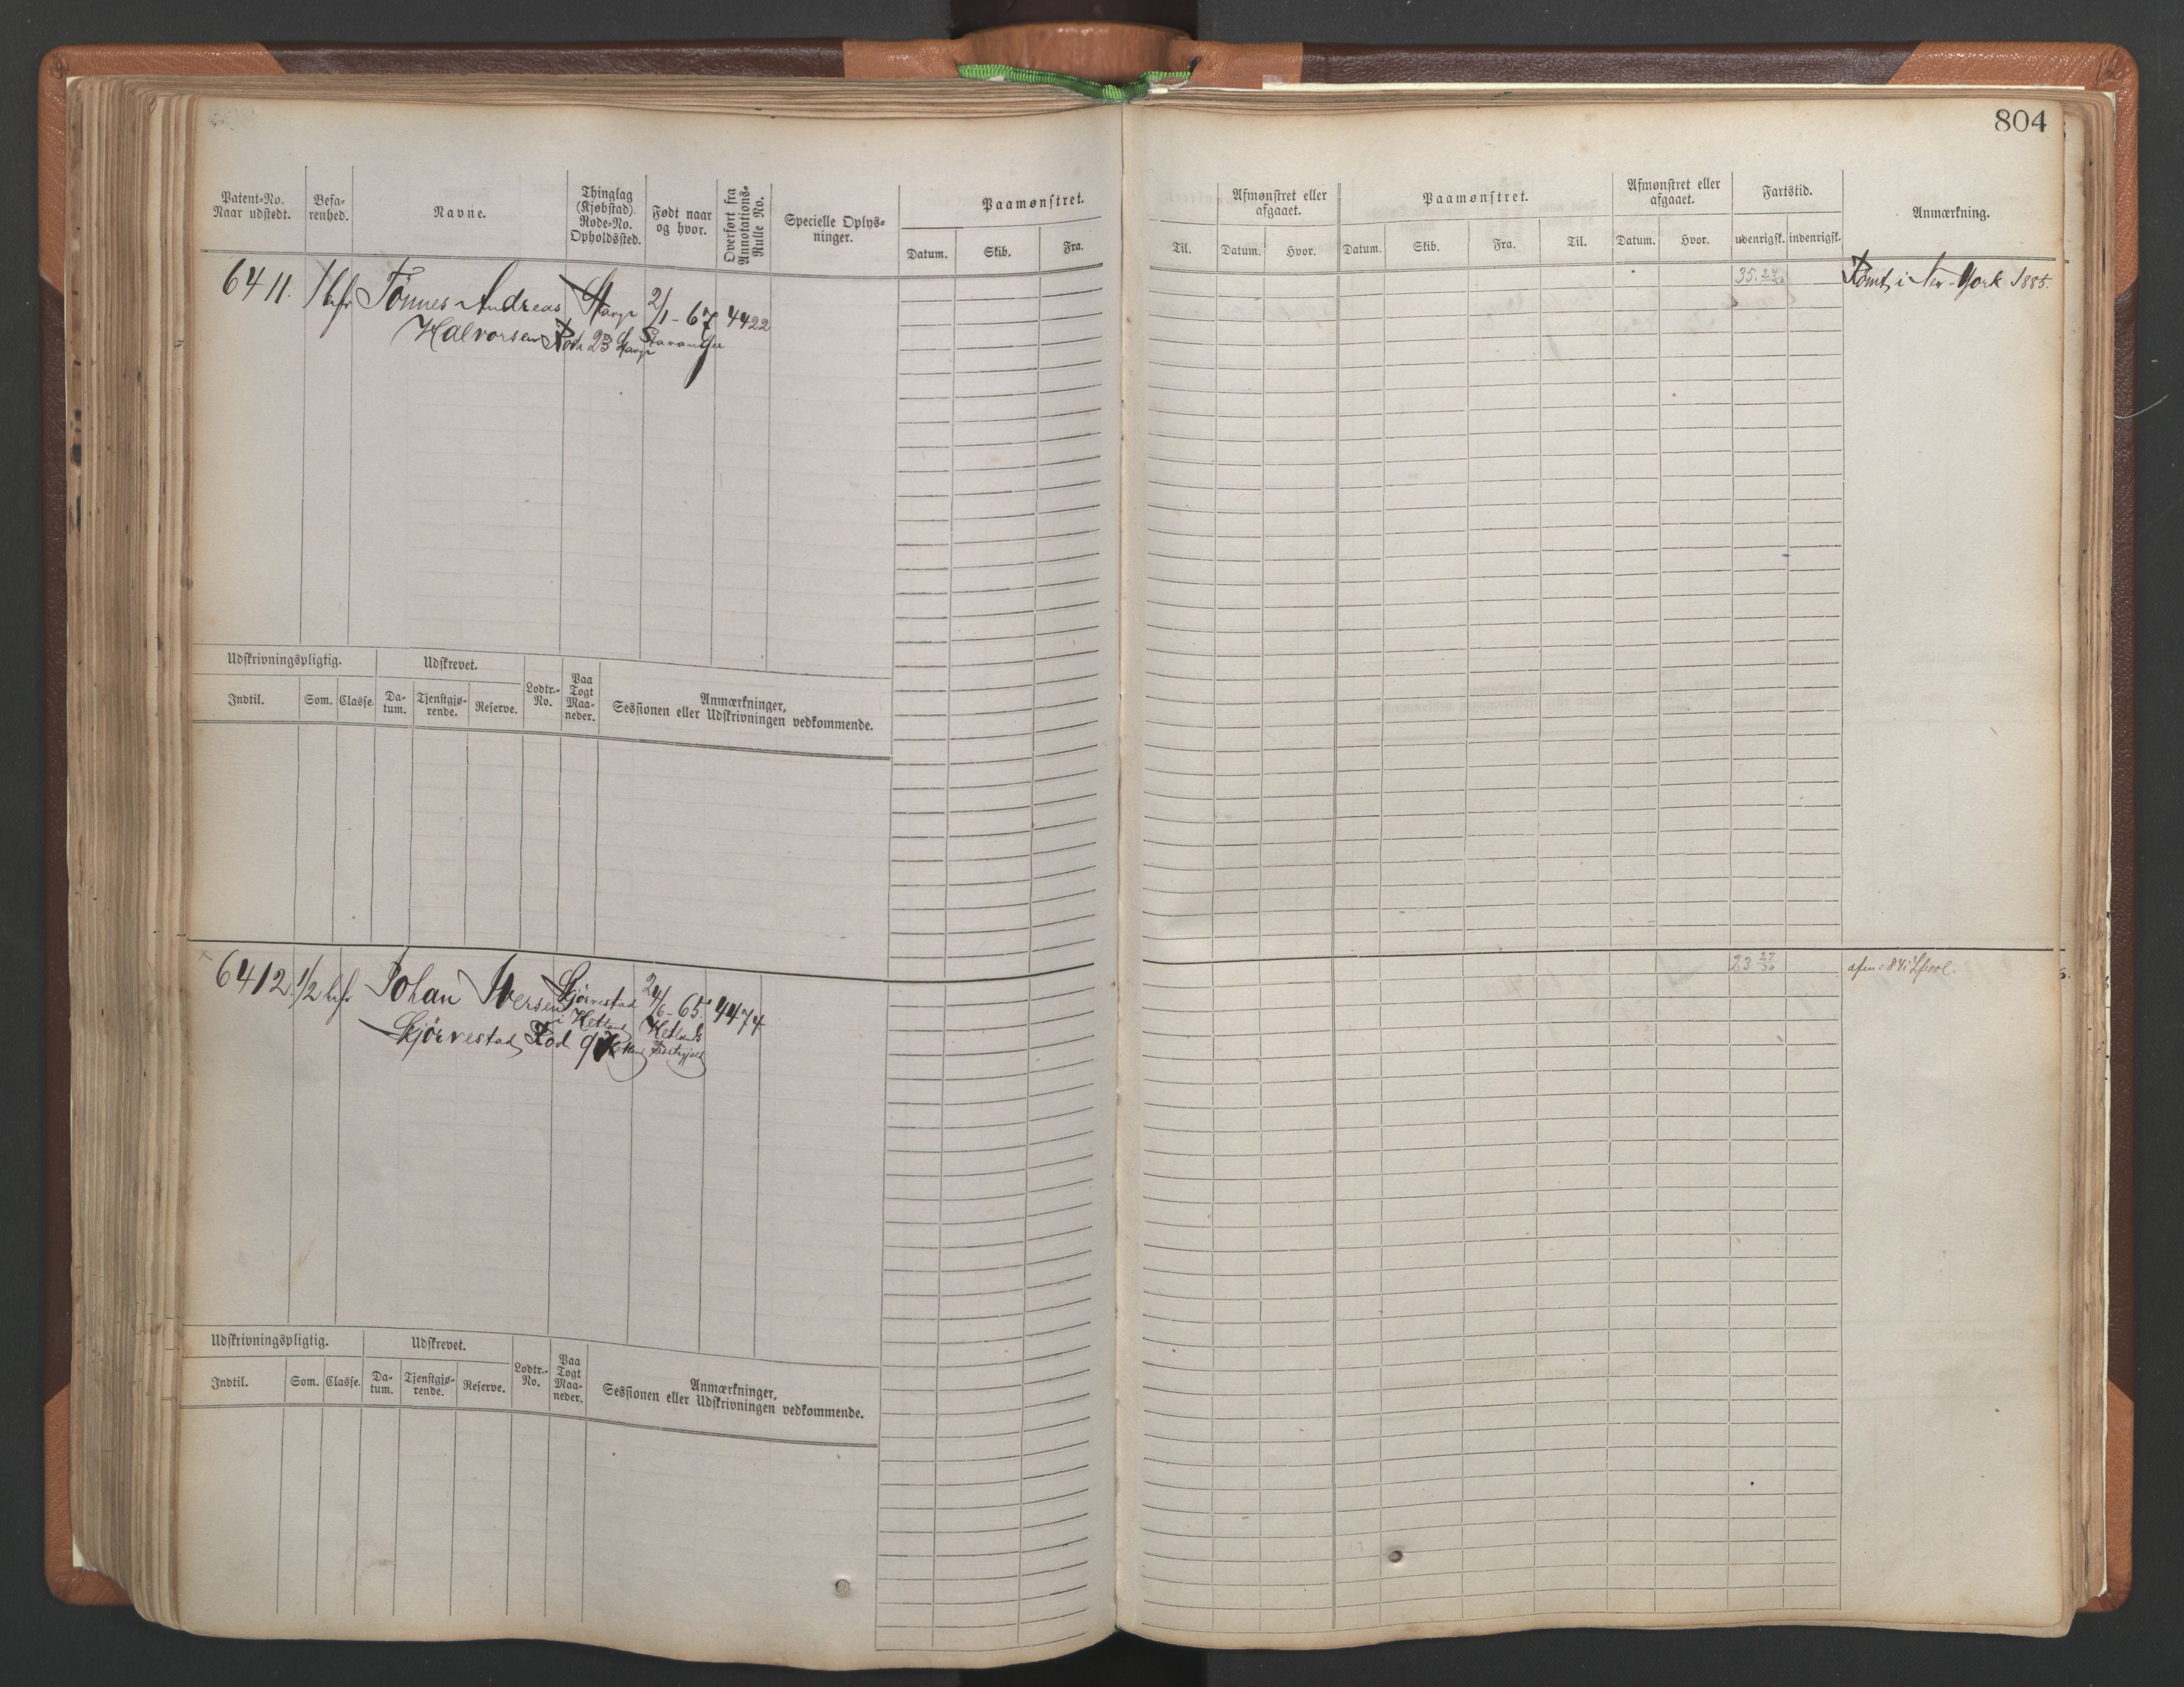 804
Patent-No.
Naar udstedt.
Befa-
renhed.
Navne.
Thinglag
(Kjøbstad).
Rode-No.
Opholdssted.
Født naar
og hvor.
Overført fra
Annotations-
Rulle No.
Specielle Oplys-
ninger.
Paamønstret.
Datum. Skib. Fra.
Til.
Afmønstret eller
afgaaet.
Datum. Hvor.
Paamønstret.
Datum. Skib. Fra. Til.
Afmønstret eller
afgaaet.
Datum. Hvor.
Fartstid.
udenrigsk. indenrigsk.
Anmærkning.
6411. Tönnes Andreas Stavgr 2/1-67 4422
Halvorsen Rode 23 Stavgr Stavanger
35. Römt i New-York 1885.
Udskrivningspligtig.
Udskrevet.
Indtil. Som. Classe.
Da-
tum.
Tjenstgjø-
rende.
Reserve.
Lodtr.-
No.
Paa
Togt
Maa-
neder.
Anmærkninger,
Sessionen eller Udskrivningen vedkommende.
6412. 1/2 Johan Iversen 24/6-65. 4474
i Hetland Hetlands
Rod 9
23 27/30
Udskrivningspligtig.
Udskrevet.
Indtil. Som. Classe.
Da-
tum.
Tjenstgjø-
rende.
Reserve.
Lodtr.-
No.
Paa
Togt
Maa-
neder.
Anmærkninger,
Sessionen eller Udskrivningen vedkommende.